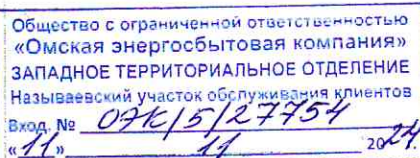 Общество с ограниченной ответственностью
«Омская энергосбытовая компания»
ЗАПАДНОЕ ТЕРРИТОРИАЛЬНОЕ ОТДЕЛЕНИЕ
Называевский участок обслуживания клиентов
Вход. № ОЭК/5/27754
«11» 11 2024